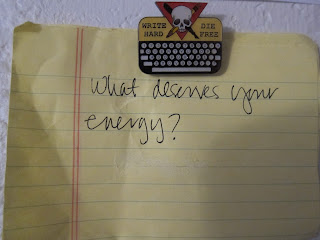 WRITE DIE
HARD FREE
What deserves your
energy?